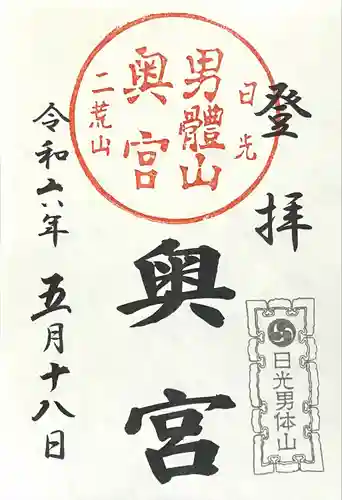 登拝
日光
男體山
奥宮
二荒山
奥宮
日光男体山
令和六年
五月十八日